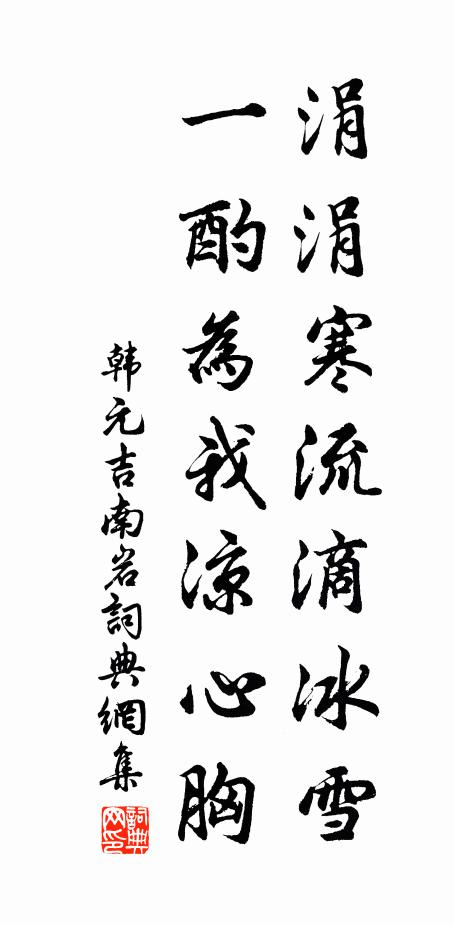 涓涓寒流滴冰雪
一酌為我涼心胸
韩元吉南岩詞典網集
詞典网印